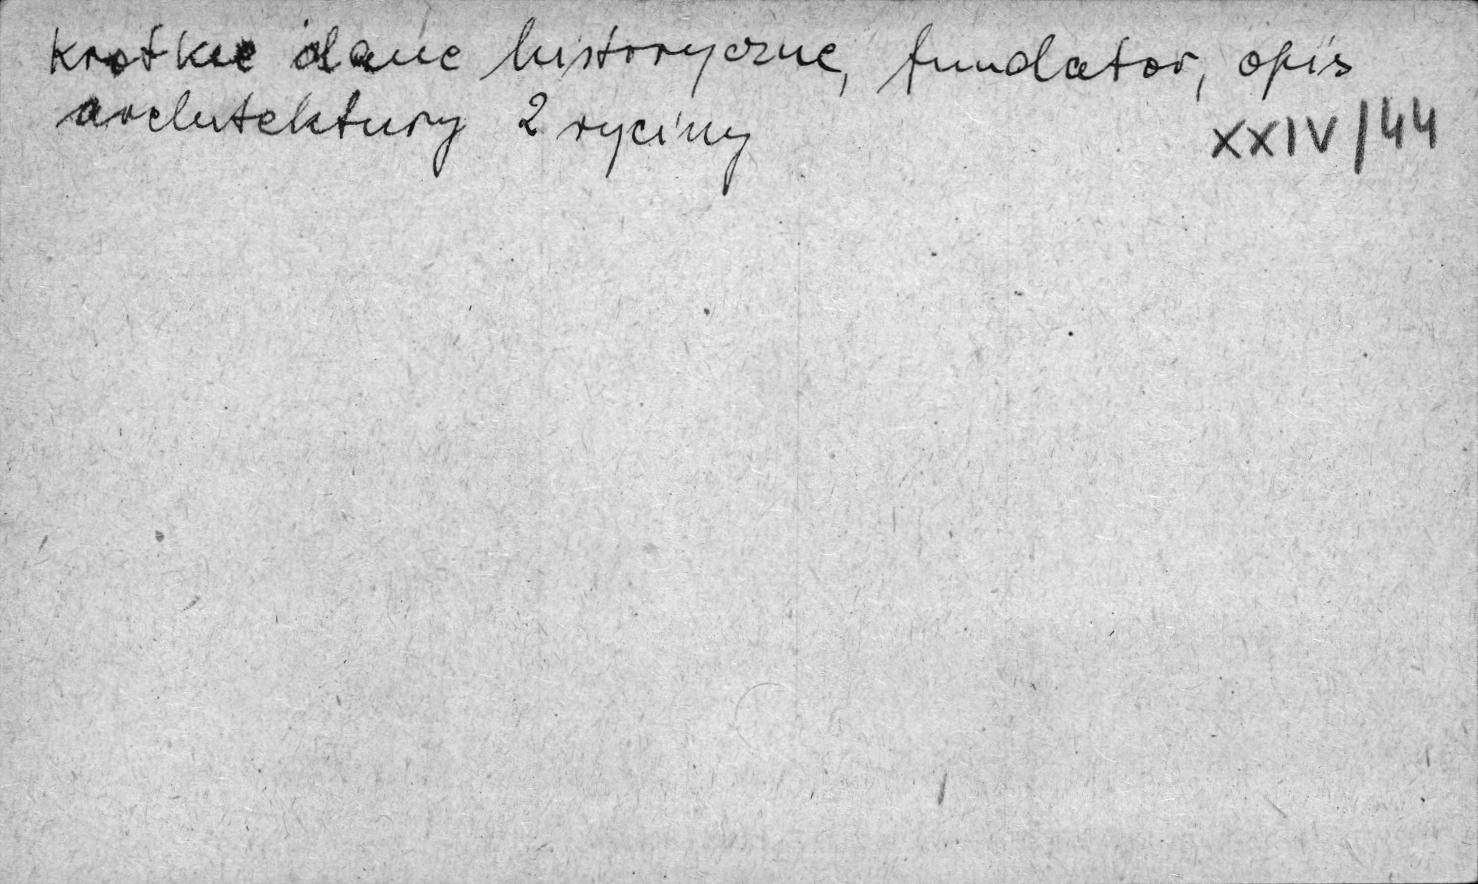 krótkie dane historyczne, fundator, opis
architektury 2 ryciny
XXIV/44